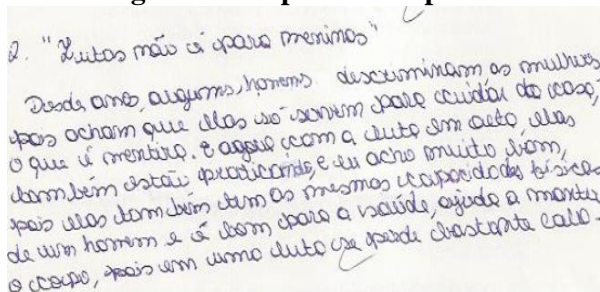 2. "Lutas não é para meninas"
Desde anos, alguns, homens discriminam, as mulheres
pois acham que elas só servem para cuidar da casa,
o que é mentira. E agora com a luta em aeta, elas
também estão praticando, e eu acho muito bom,
pois elas também tem as mesmas capacidades físicas
de um homem e é bom para a saúde, ajuda a manter
o corpo, pois em uma luta se perde bastante calo-